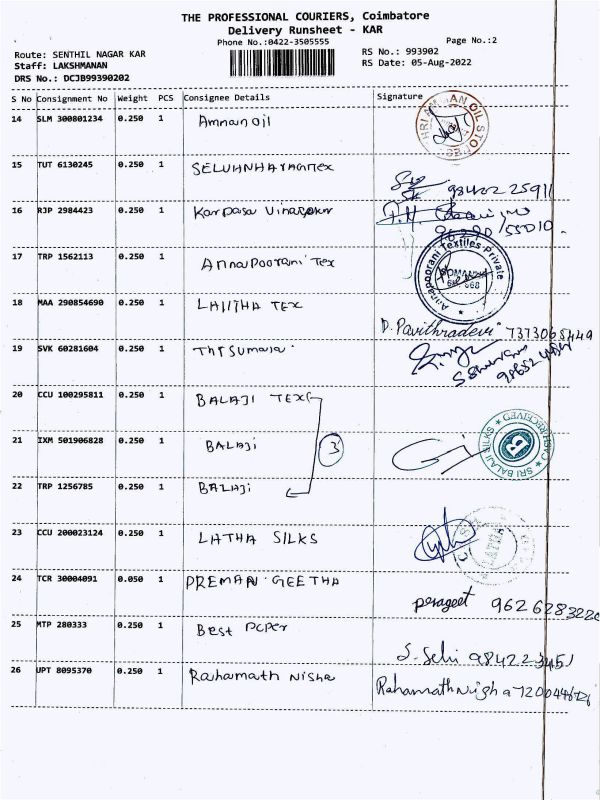 THE PROFESSIONAL COURIERS, Coimbatore
Delivery Runsheet - KAR
Phone No.:0422-3505555
Page No.:2
Route: SENTHIL NAGAR KAR
RS No.: 993902
Staff: LAKSHMANAN
RS Date: 05-Aug-2022
DRS No.: DCJB99390202
S No Consignment No Weight PCS Consignee Details Signature
14 SLM 300801234 0.250 1 Amman oil
15 TUT 6130245 0.250 1
98422 25911
16 RJP 2984423 0.250 1 Karpaga Vinayagar
17 TRP 1562113 0.250 1 Annapoorani Tex
Annapoorani Textiles Private
18 MAA 290854690 0.250 1 LALITHA TEX
D. Pavithradevi 7373065449
19 SVK 60281604 0.250 1
20 CCU 100295811 0.250 1 BALAJI TEX
21 IXM 501906828 0.250 1 BALAJI 3
SRI BALAJI SILKS
22 TRP 1256785 0.250 1 BALAJI
23 CCU 200023124 0.250 1 LATHA SILKS
24 TCR 30004091 0.050 1 PREMAN GEETHA
9626283220
25 MTP 280333 0.250 1 Best Peper
S. Selvi 984223451
26 UPT 8095370 0.250 1 Rahamath Nisha
Rahamath Nisha